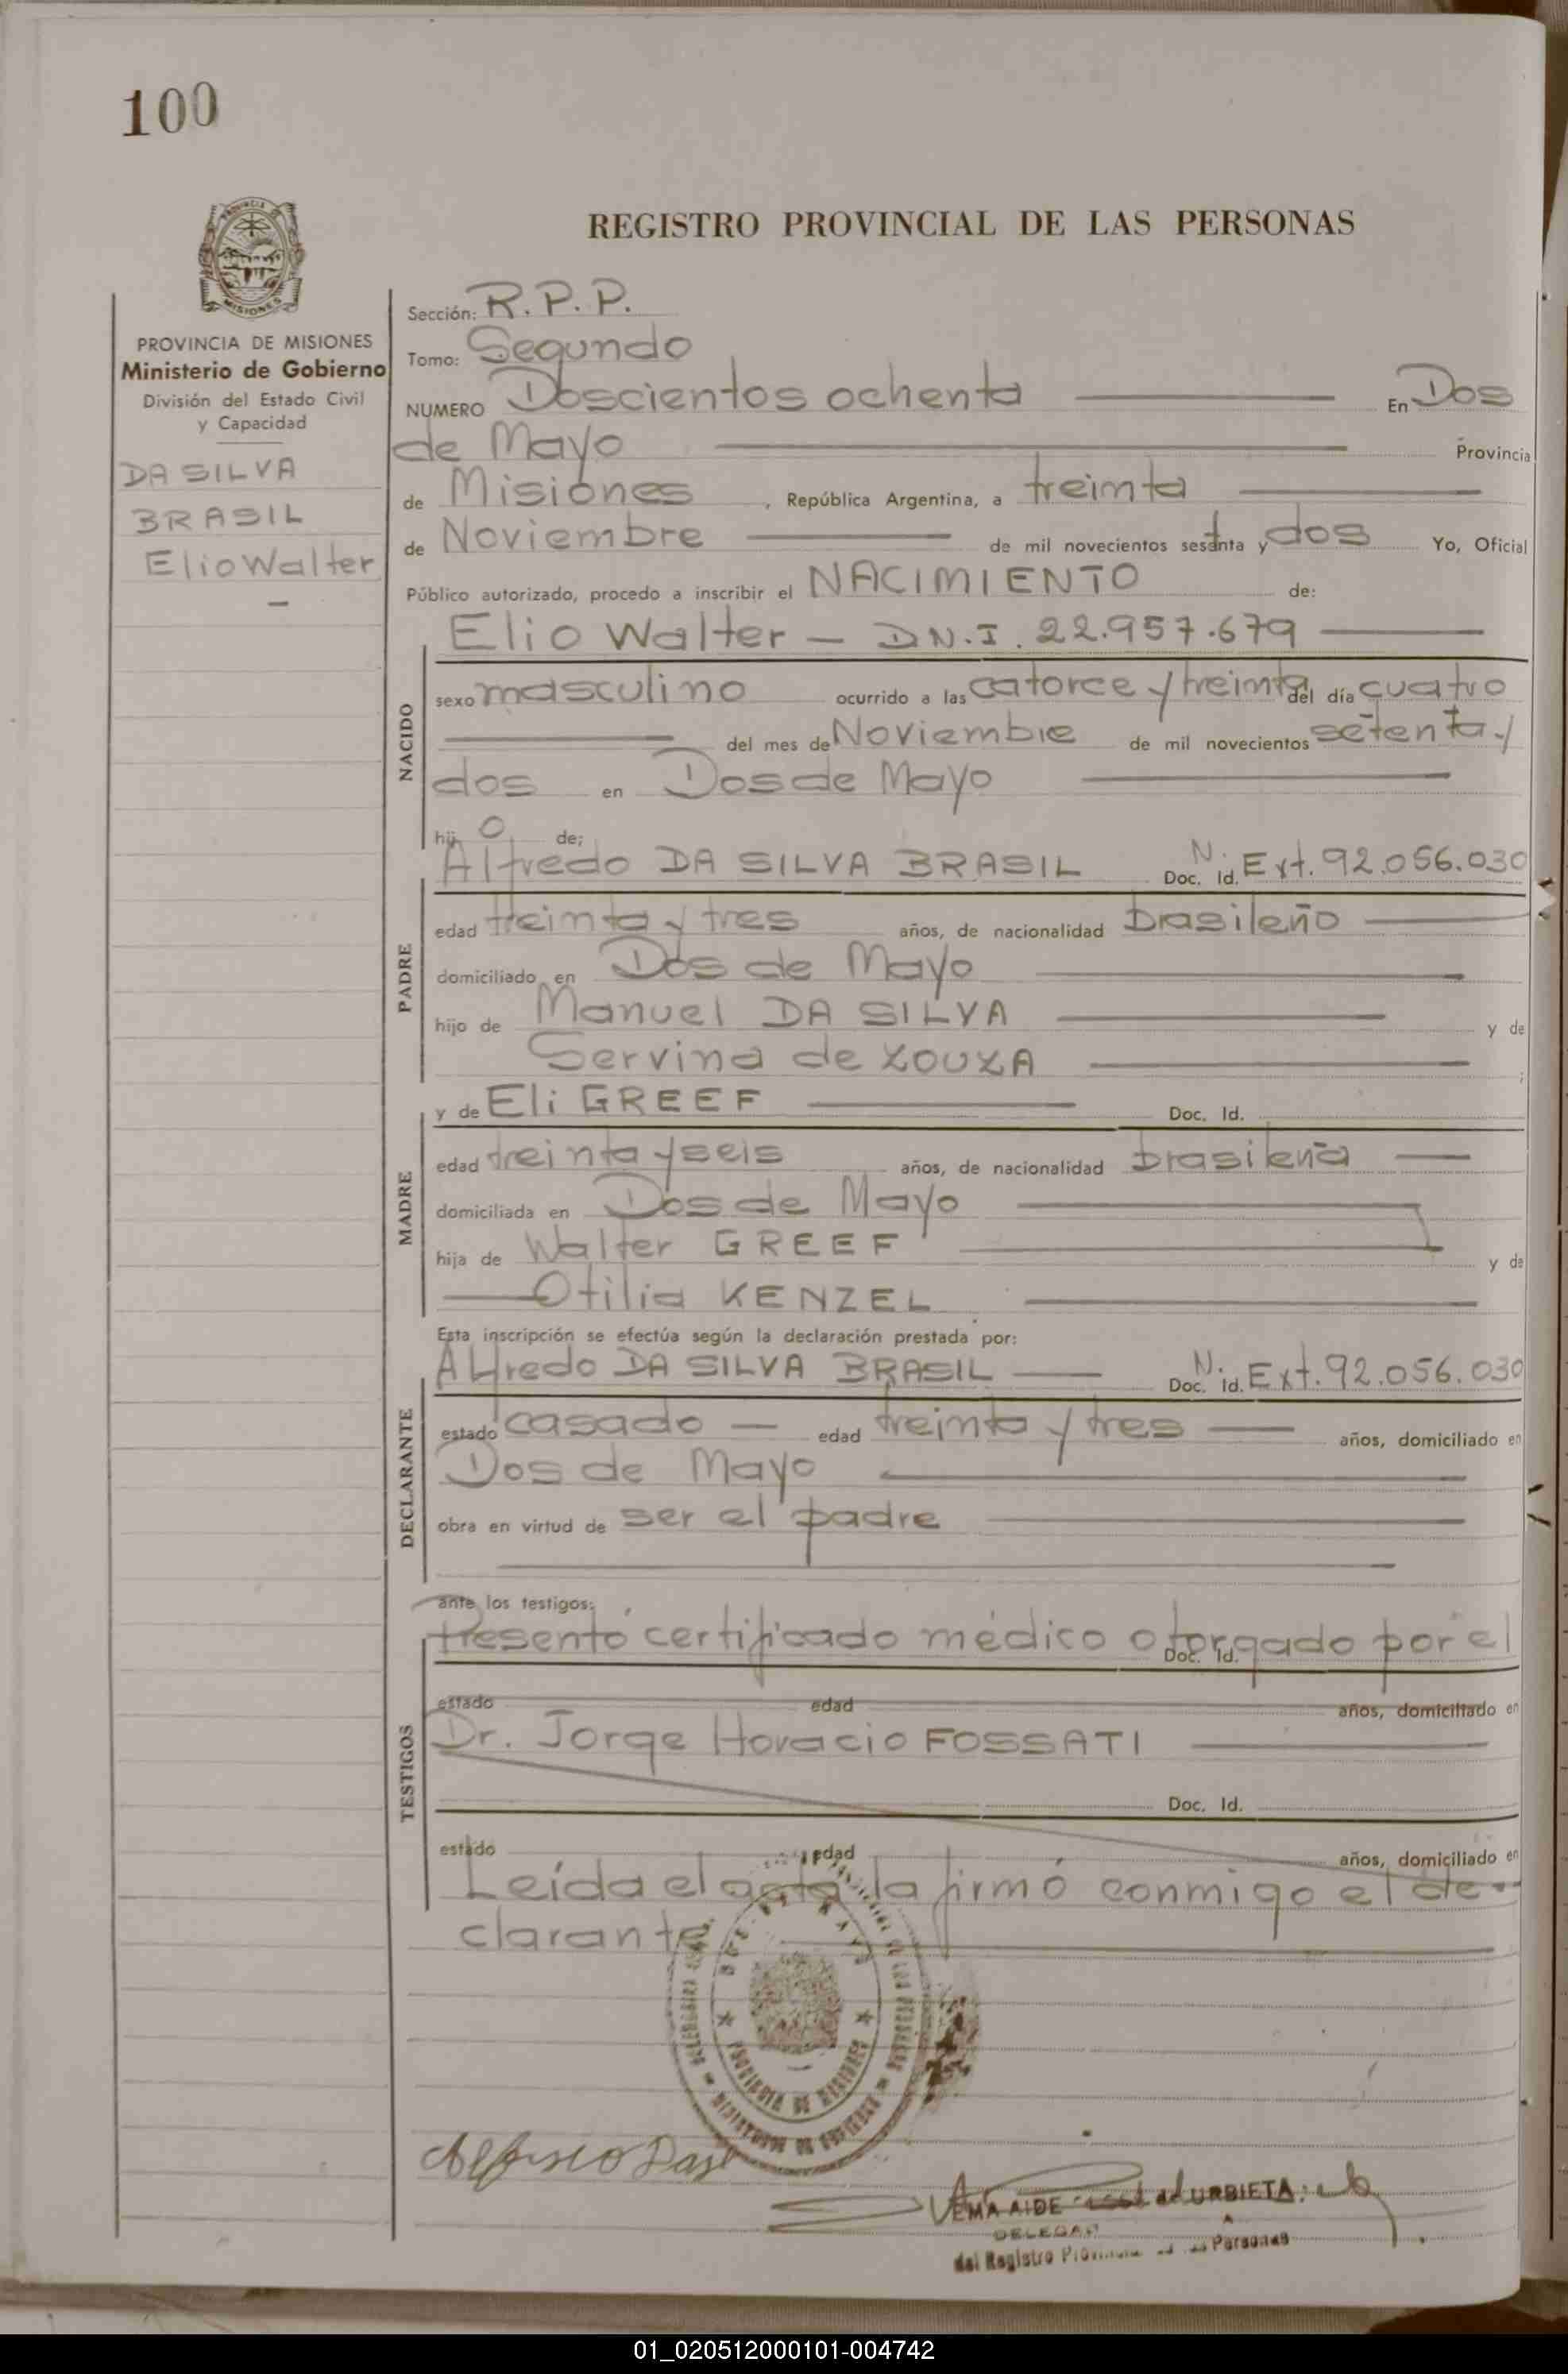 100
REGISTRO PROVINCIAL DE LAS PERSONAS
PROVINCIA DE
MISIONES
PROVINCIA DE MISIONES
Ministerio de Gobierno
División del Estado Civil
y Capacidad
DA SILVA
BRASIL
Elio Walter
Sección: R.P.P.
Tomo: Segundo
NUMERO Doscientos ochenta En Dos
de Mayo Provincia
de Misiones, República Argentina, a treinta
de Noviembre de mil novecientos sesenta y dos Yo, Oficial
Público autorizado, procedo a inscribir el NACIMIENTO de:
NACIDO
Elio Walter - D.N.I. 22.957.679
sexo masculino ocurrido a las catorce y treinta del día cuatro
del mes de Noviembre de mil novecientos setenta y
dos en Dos de Mayo
hijo de;
PADRE
Alfredo DA SILVA BRASIL Doc. Id. N. Ext. 92.056.030
edad treinta y tres años, de nacionalidad brasileño
domiciliado en Dos de Mayo
hijo de Manuel DA SILVA y de
Servina de ZOUZA ;
MADRE
y de Eli GREEF Doc. Id.
edad treinta y seis años, de nacionalidad brasileña
domiciliada en Dos de Mayo
hija de Walter GREEF y de
Otilia KENZEL
Esta inscripción se efectúa según la declaración prestada por:
DECLARANTE
Alfredo DA SILVA BRASIL Doc. Id. N. Ext. 92.056.030
estado casado edad treinta y tres años, domiciliado en
Dos de Mayo
obra en virtud de ser el padre
ante los testigos:
TESTIGOS
Presentó certificado médico otorgado por el
Doc. Id.
estado edad años, domiciliado en
Dr. Jorge Horacio FOSSATI
Doc. Id.
estado edad años, domiciliado en
Leída el acta la firmó conmigo el de-
clarante.
PROVINCIA DE MISIONES
MINISTERIO DE GOBIERNO
VEMA AIDE URBIETA
DELEGAD
del Registro Provincial de las Personas
01_020512000101-004742